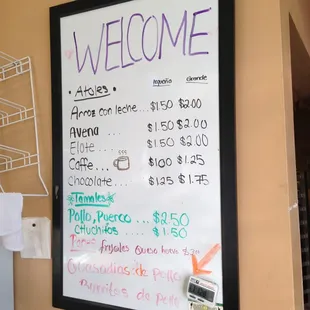 WELCOME
pequeño Grande
• Atoles:
Arroz con leche... $1.50 $2.00
Avena ... $1.50 $2.00
Elote ... $1.50 $2.00
Caffe... $1.00 $1.25
Chocolate... $1.25 $1.75
Tamales
Pollo, Puerco ... $2.50
Chuchitos .... $1.50
frijoles Queso
Quesadillas de pollo
Burritos de pollo